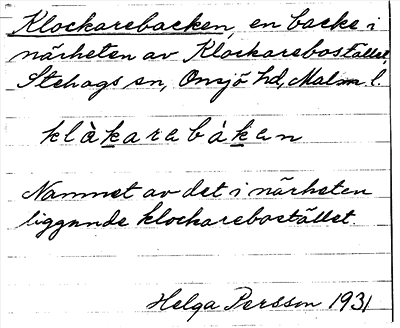 Klockarebacken, en backe i
närheten av Klockarebostället,
Stehags sn, Onsjö hd, Malm. l.
klàkarabàkan
Namnet av det i närheten
liggande klockarebostället.
Helga Persson 1931